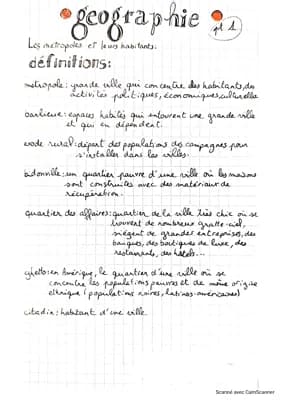 geographie
pt 1
Les métropoles et leurs habitants:
définitions:
metropole: grande ville qui concentre des habitants, des
activités politiques, économiques, culturelles
banlieue: espaces habités qui entourent une grande ville
et qui en dépendent.
exode rural: départ des populations des campagnes pour
s'installer dans les villes.
bidonville: un quartier pauvre d'une ville où les maisons
sont construites avec des matériaux de
récupération.
quartier des affaires: quartier de la ville très chic où se
trouvent de nombreux gratte-ciel,
siègent de grandes entreprises, des
banques, des boutiques de luxe, des
restaurants, des hôtels...
ghetto: en Amérique, le quartier d'une ville où se
concentre les populations pauvres et de même origine
ethnique (populations noires, latinos-américaines)
citadin: habitant d'une ville
Scanné avec CamScanner